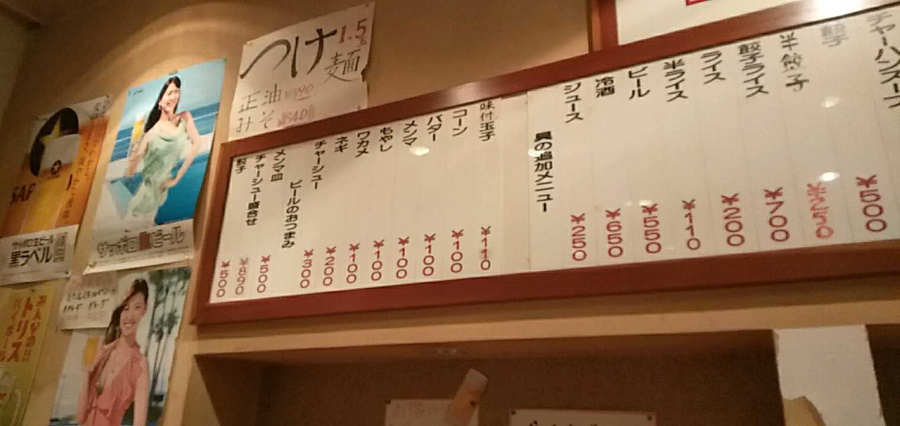 チャーハンスープ ¥500
餃子
半餃子 ¥250
餃子ライス ¥700
ライス ¥200
半ライス ¥110
ビール ¥550
冷酒 ¥650
ジュース ¥250
具の追加メニュー
味付玉子 ¥110
コーン ¥100
バター ¥100
メンマ ¥100
もやし ¥100
ワカメ ¥100
ネギ ¥200
チャーシュー ¥300
ビールのおつまみ
メンマ皿 ¥500
チャーシュー盛合せ ¥890
餃子 ¥500
つけ麺
1.5
正油
みそ
サッポロ生ビール
サッポロ生ビール
黒ラベル
みんなの!!
トリス
ハイボール